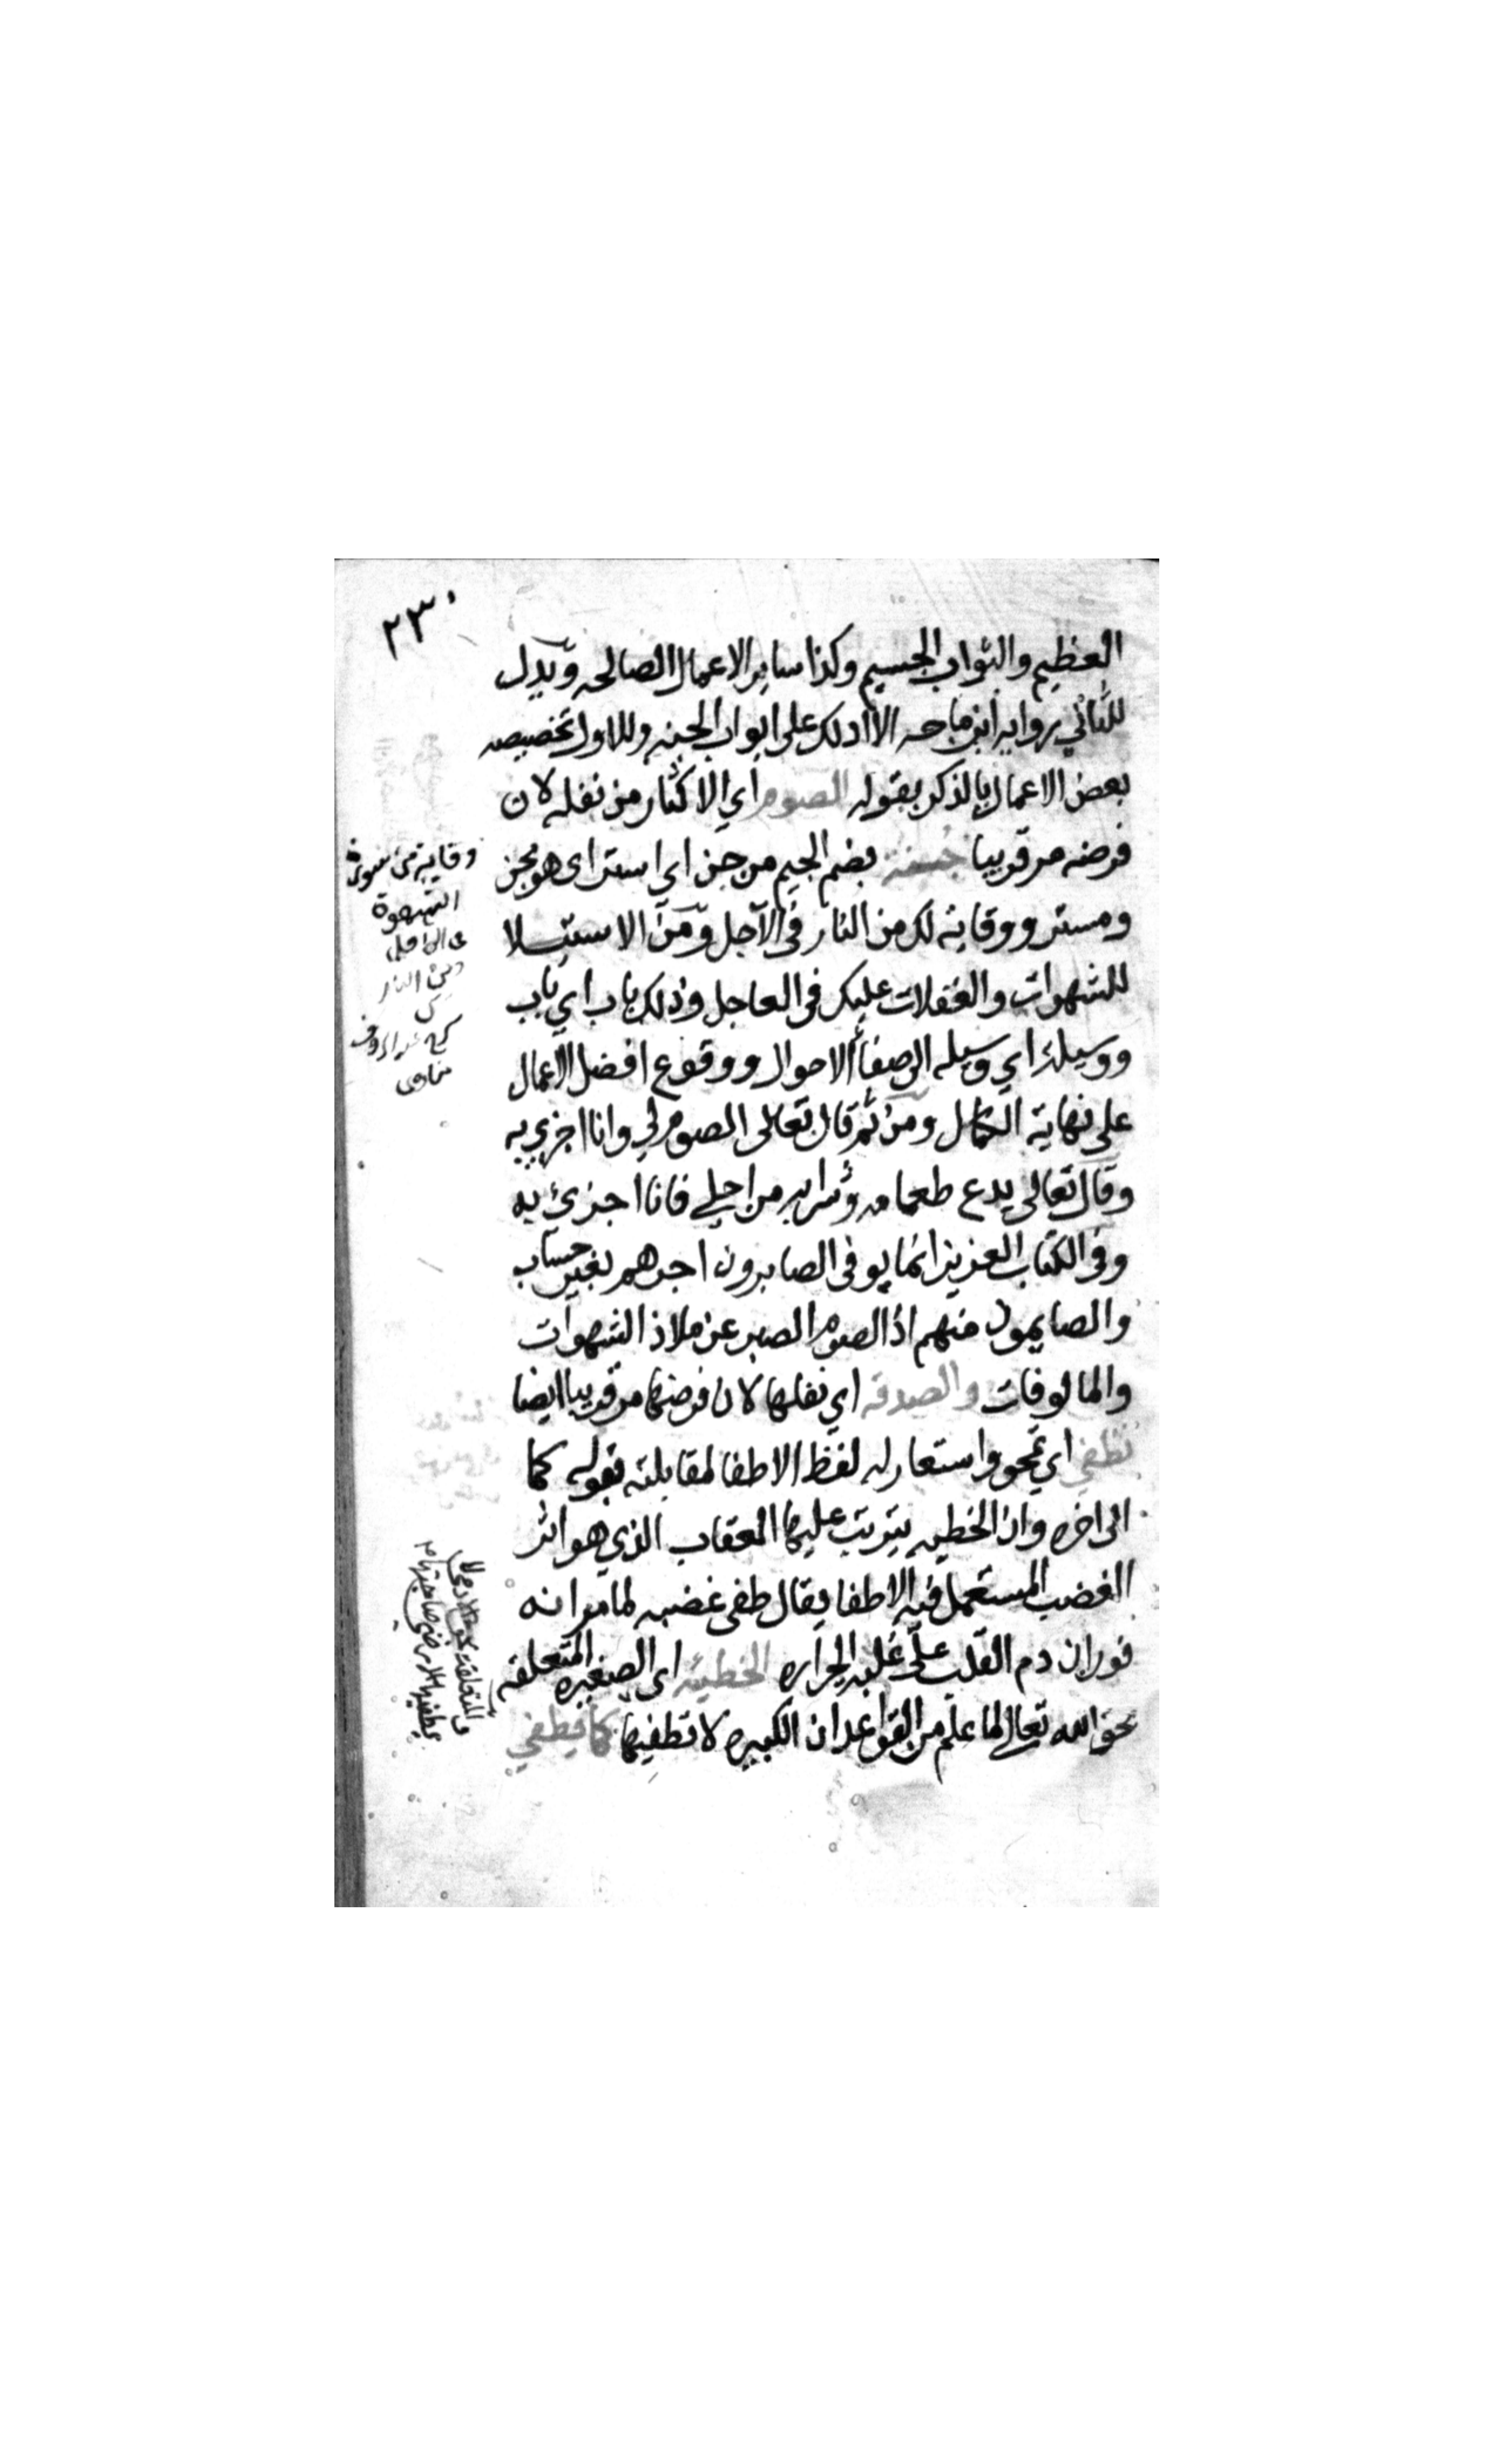 ٢٣٠
العظيم والثواب الجسيم وكذا ساير الاعمال الصالحه ويدل
للثاني رواية ابن ماجه الا ادلك على ابواب الجنه وللاول تخصيصه
بعض الاعمال بالذكر بقوله الصوم اي الاكثار من نفله لان
فرضه مر قريبا جنة بضم الجيم من جن اي استتر اى هو مجن
وستر ووقاية لك من النار في الآجل ومن الاستيلا
للشهوات والغفلات عليك في العاجل وذلك باب اي باب
ووسيلة اي وسيله الى صفا الاحوال ووقوع افضل الاعمال
على نهاية الكمال ومن ثم قال تعالى الصوم لي وانا اجزي به
وقال تعالى يدع طعامه وشرابه من اجلي فانا اجزئ به
وفي الكتاب العزيز انما يوفى الصابرون اجرهم بغير حساب
والصايمون منهم اذ الصوم الصبر عن ملاذ الشهوات
والمالوفات والصدقه اي نفلها لان فرضها مر قريبا ايضا
تطفي اي تمحو واستعار له لفظ الاطفا لمقابلته بقوله كما
الى اخره وان الخطيه يترتب عليها العقاب الذي هو اثر
الغضب المستعمل فيه الاطفا يقال طفى غضبه لما مر انه
فوران دم القلب على غلبه الحراره الخطيئه اى الصغيره المتعلقه
بحق الله تعالى لما علم من القواعد ان الكبيره لا تطفيها كما يطفي
وقاية من سورة
الشهوة
من النار
عبد الروف
مناوى
المتعلقة بحق الادمي لا
يطفيها الا رضى صاحبها